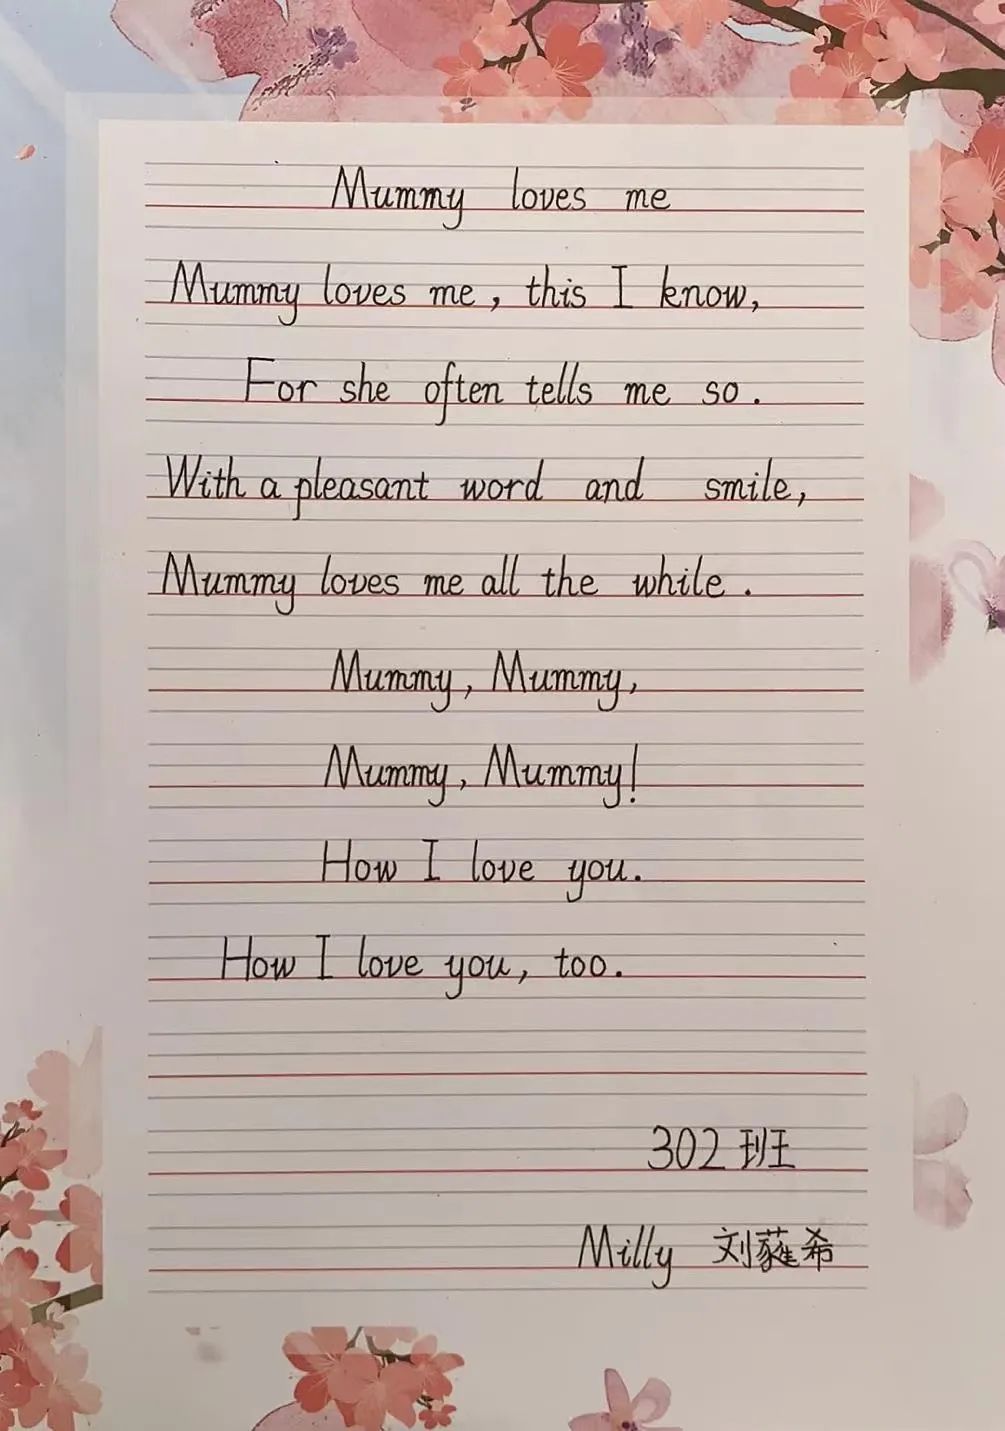 Mummy loves me
Mummy loves me, this I know,
For she often tells me so.
With a pleasant word and smile,
Mummy loves me all the while.
Mummy, Mummy,
Mummy, Mummy!
How I love you.
How I love you, too.
302班
Milly